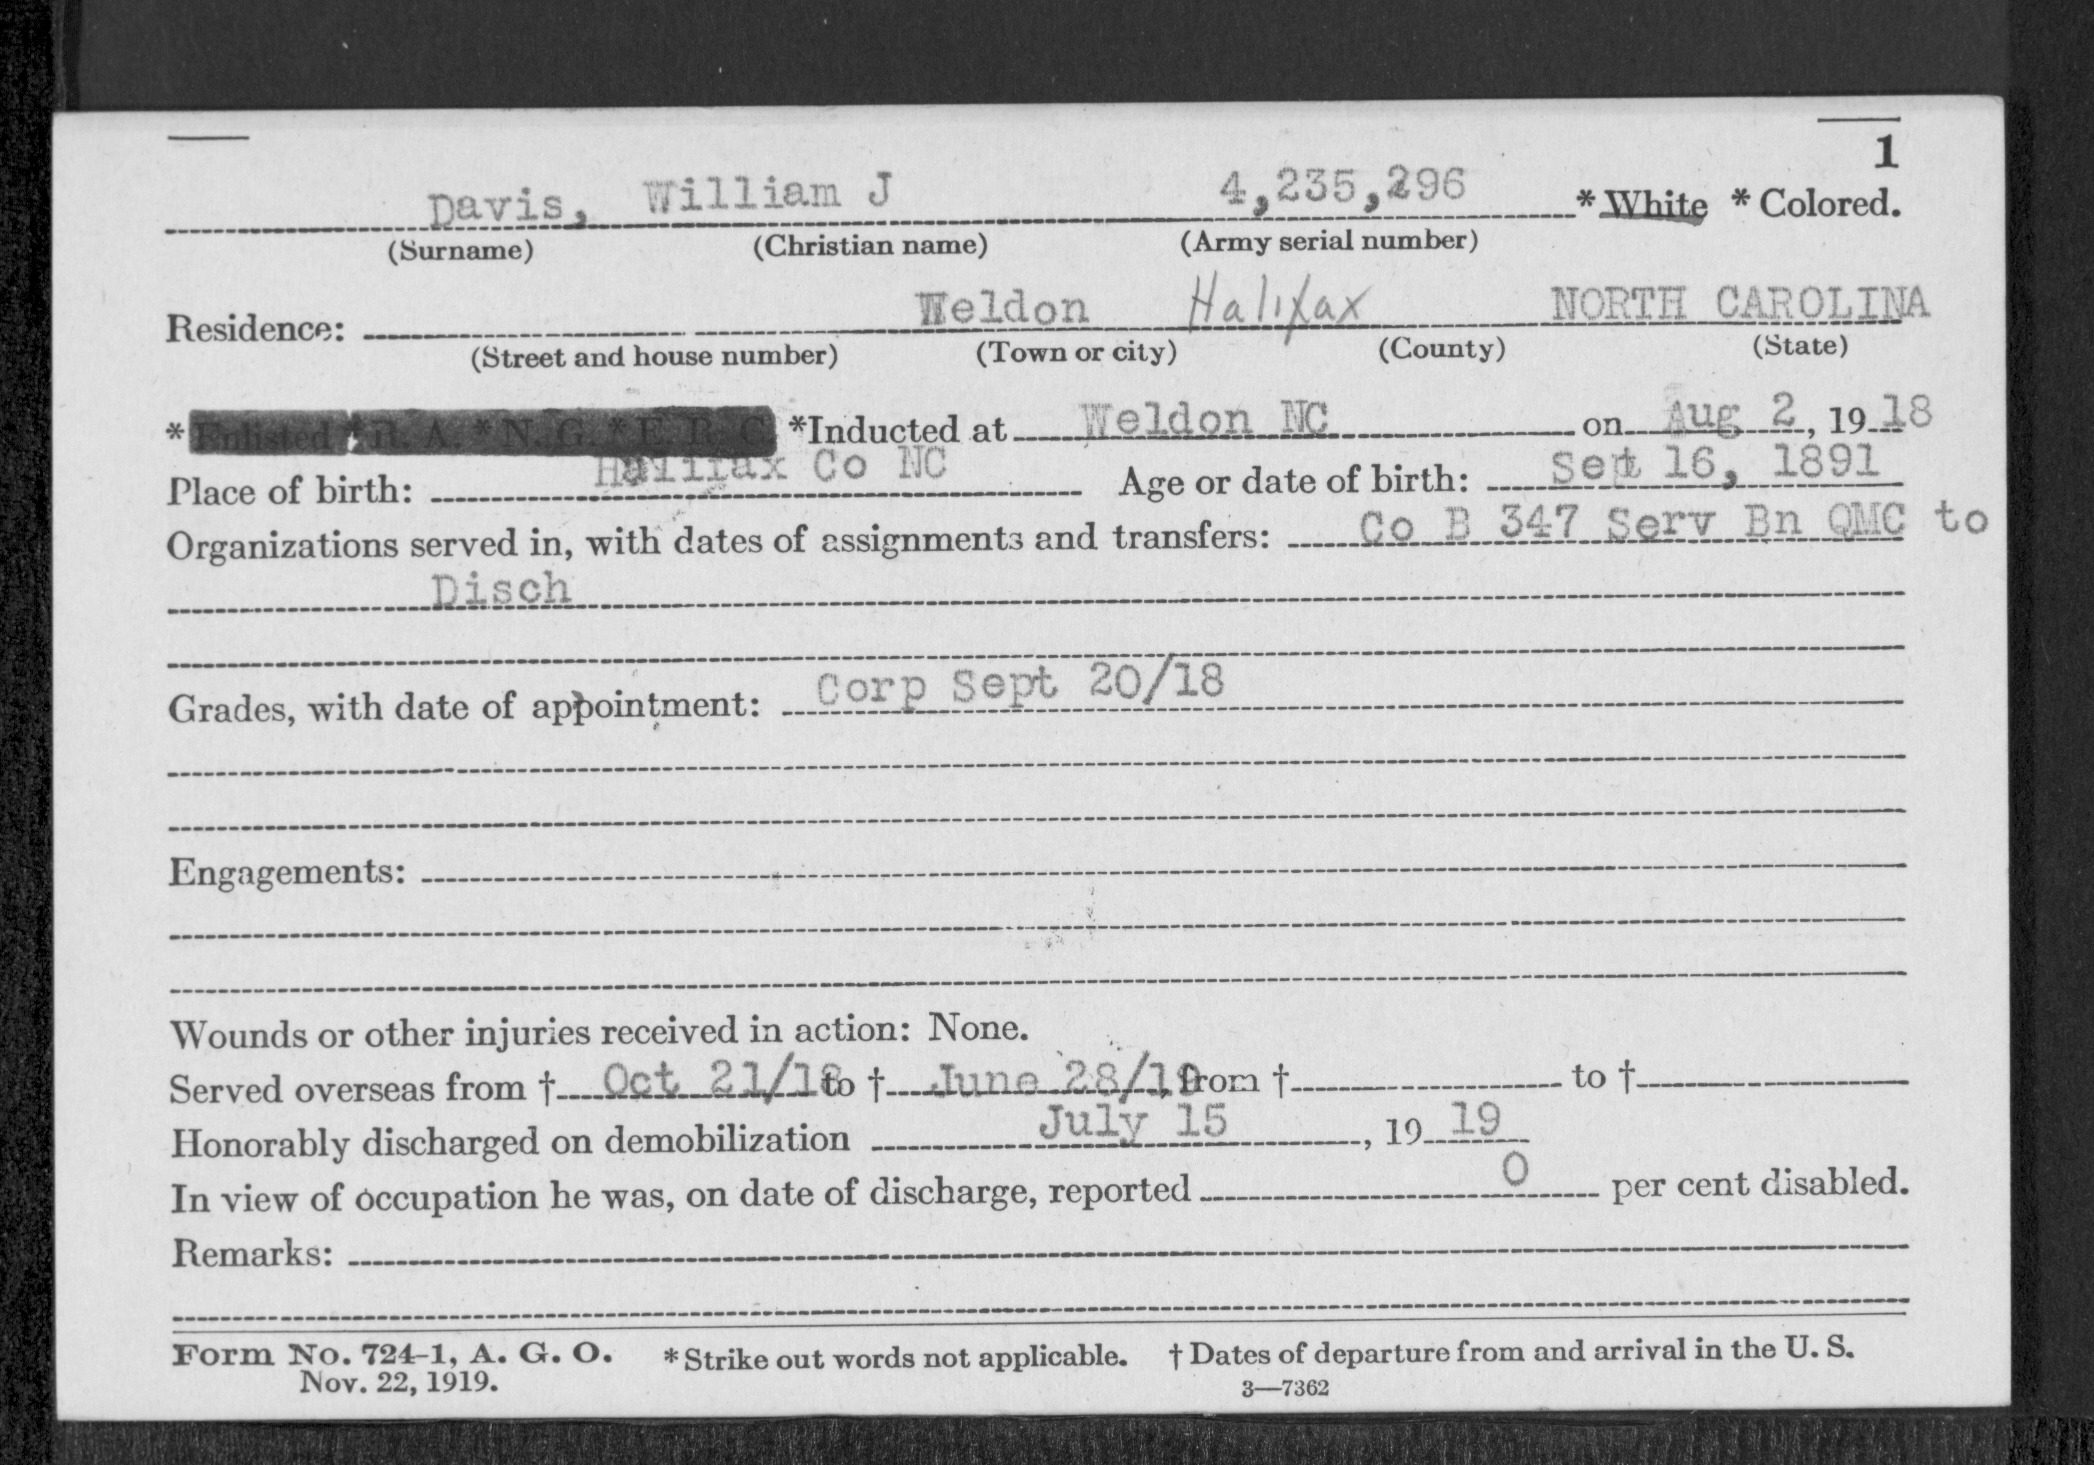 1
Davis, William J 4,235,296 * White * Colored.
(Surname) (Christian name) (Army serial number)
Residence: Weldon Halifax NORTH CAROLINA
(Street and house number) (Town or city) (County) (State)
* Enlisted * R. A. * N. G. * E. R. C. *Inducted at Weldon NC on Aug 2, 19 18
Place of birth: Halifax Co NC Age or date of birth: Sept 16, 1891
Organizations served in, with dates of assignments and transfers: Co B 347 Serv Bn QMC to
Disch
Grades, with date of appointment: Corp Sept 20/18
Engagements:
Wounds or other injuries received in action: None.
Served overseas from † Oct 21/18 to † June 28/19, from † to †
Honorably discharged on demobilization July 15, 19 19
In view of occupation he was, on date of discharge, reported 0 per cent disabled.
Remarks:
Form No. 724-1, A. G. O. * Strike out words not applicable. † Dates of departure from and arrival in the U. S.
Nov. 22, 1919. 3—7362